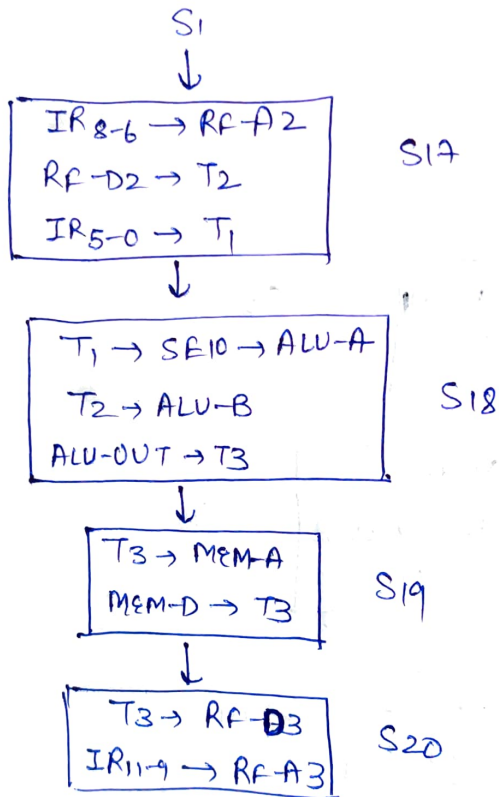 S1
↓
IR8-6 → RF-A2
RF-D2 → T2
IR5-0 → T1
S17
↓
T1 → SE10 → ALU-A
T2 → ALU-B
ALU-OUT → T3
S18
↓
T3 → MEM-A
MEM-D → T3
S19
↓
T3 → RF-D3
IR11-9 → RF-A3
S20